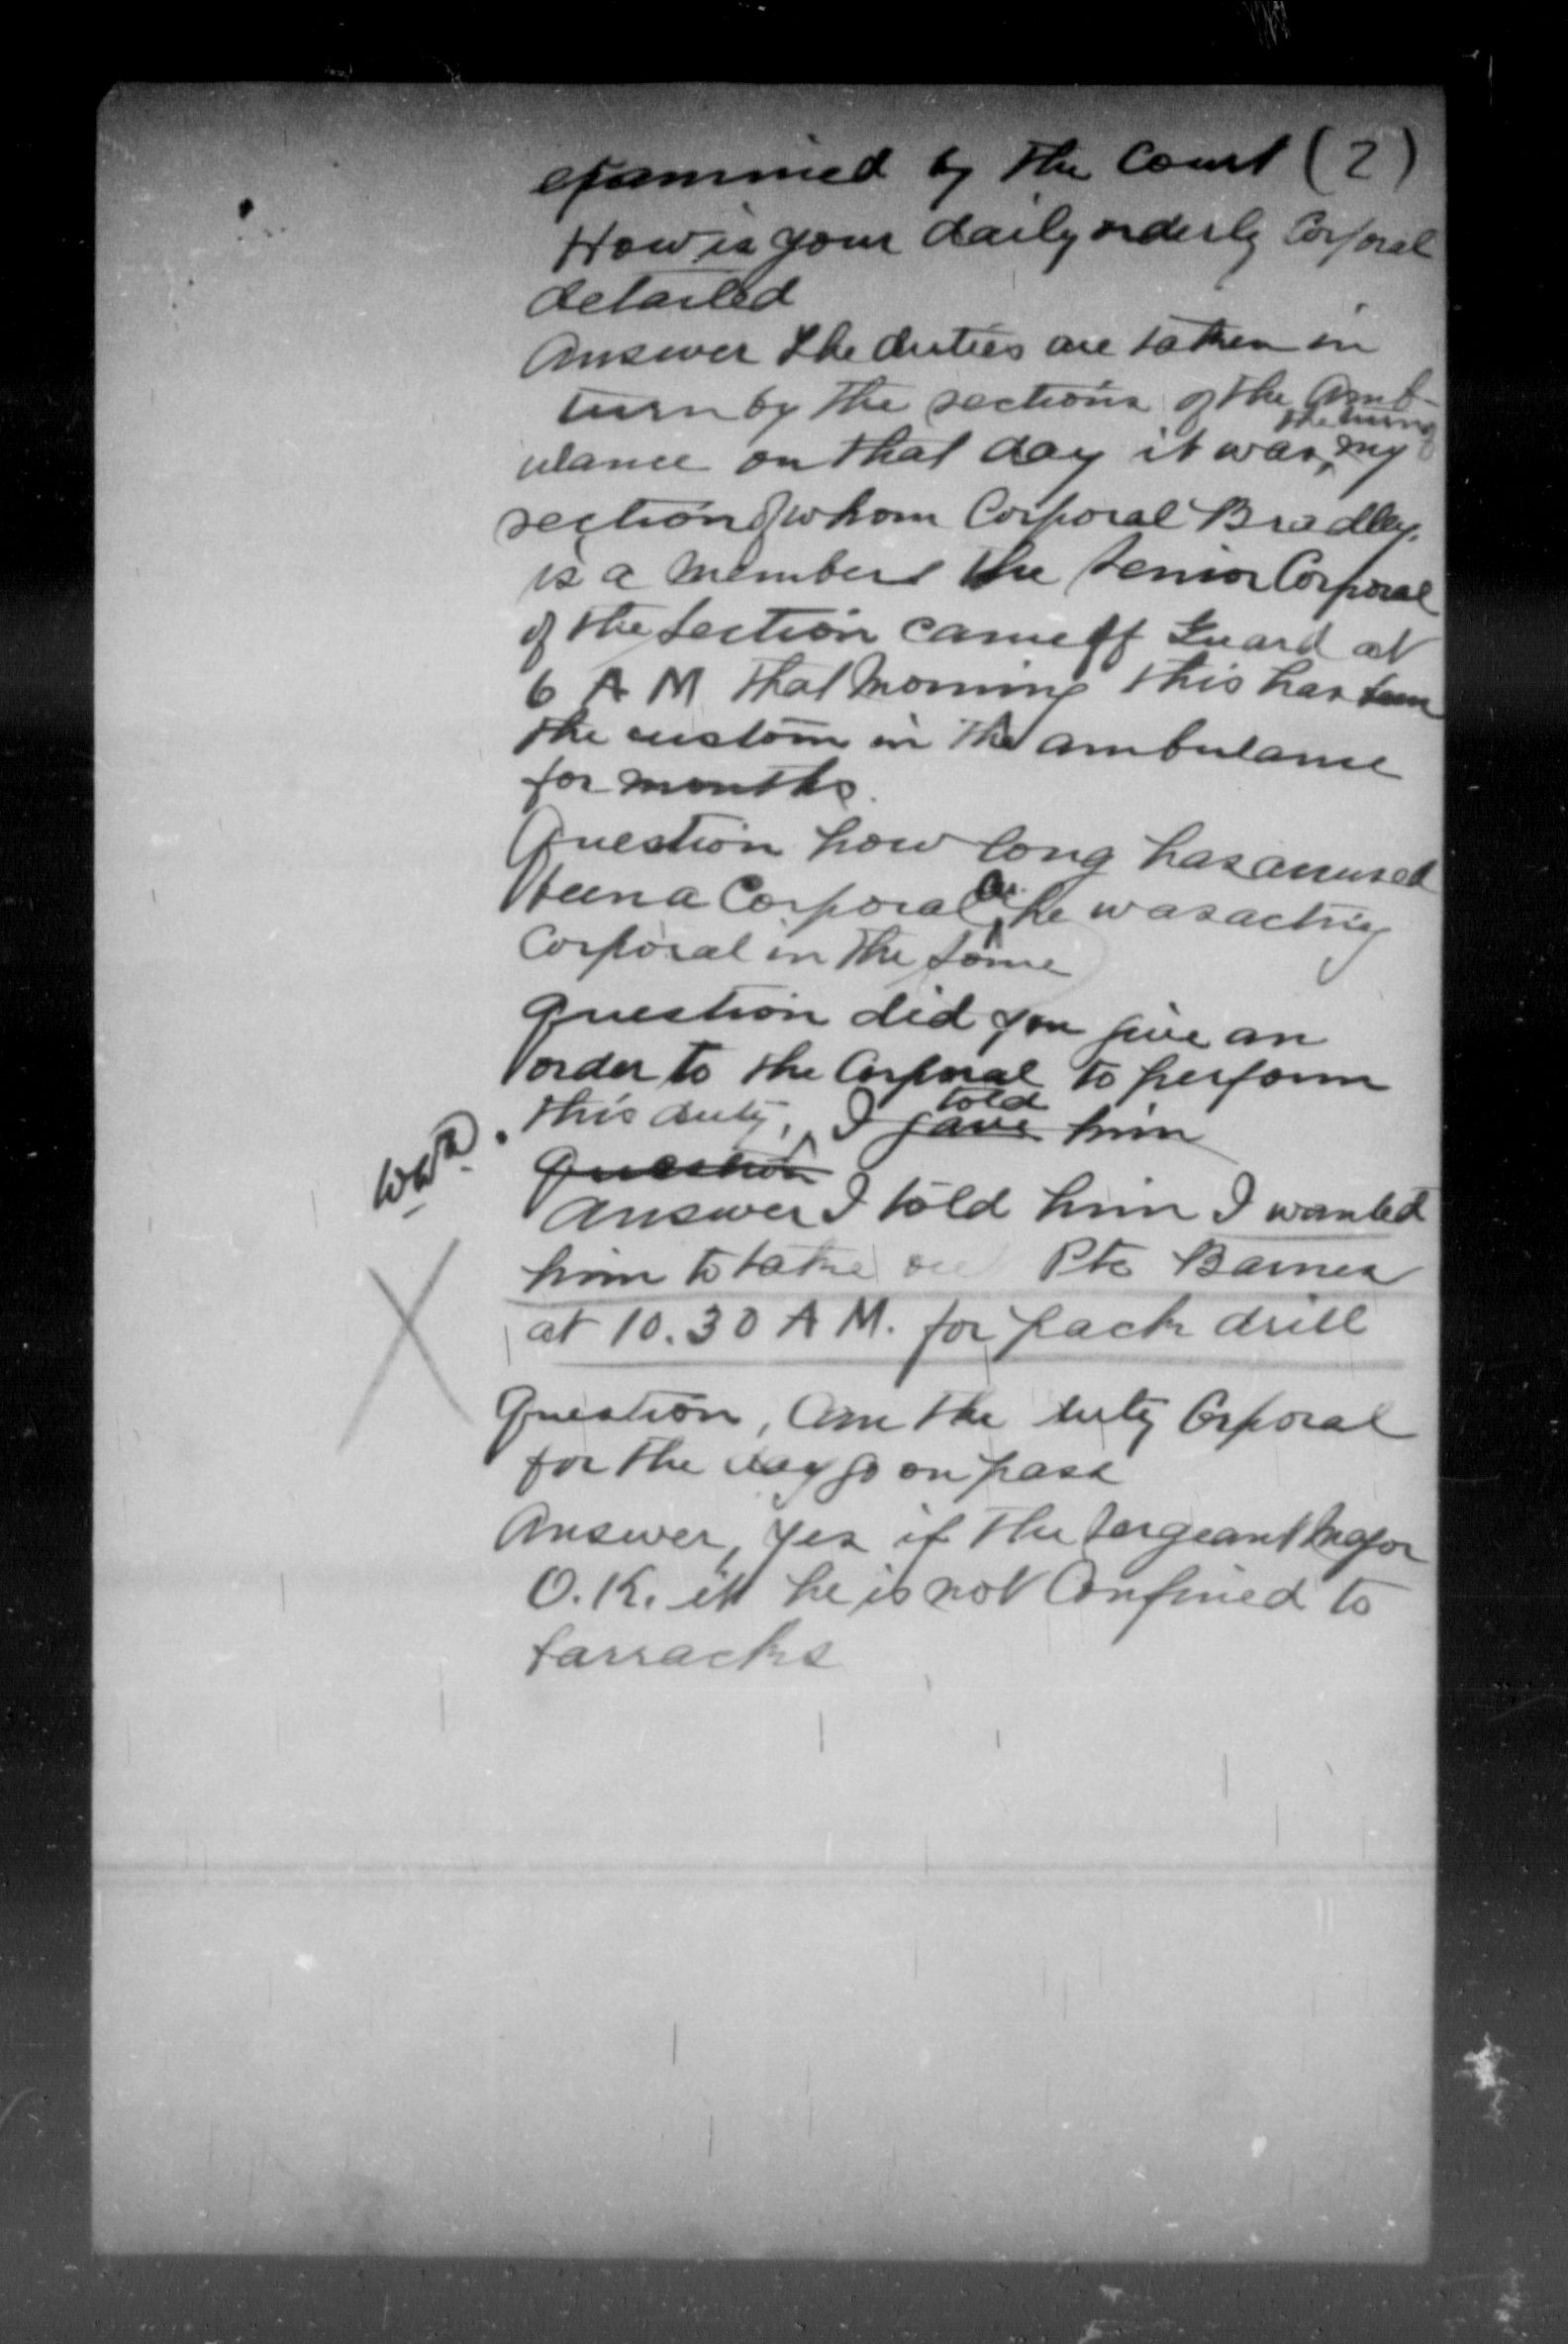 examined by the Court (2)
How is your daily orderly Corporal
detailed
Answer The duties are taken in
turn by the sections of the Amb-
the turn of
ulance on that day it was my
section of whom Corporal Bradley
is a member the Senior Corporal
of the Section came off Guard at
6 A M that morning this has been
the custom in the ambulance
for months.
Question how long has accused
been a Corporal A. he was acting
Corporal in the Somme
Question did you give an
order to the Corporal to perform
told
this duty, I gave him
Question
Answer I told him I wanted
him to take Pte Barnes
at 10.30 A M. for pack drill
Question, Can the duty Corporal
for the day go on pass
Answer, Yes if the Sergeant Major
O.K. it he is not Confined to
barracks